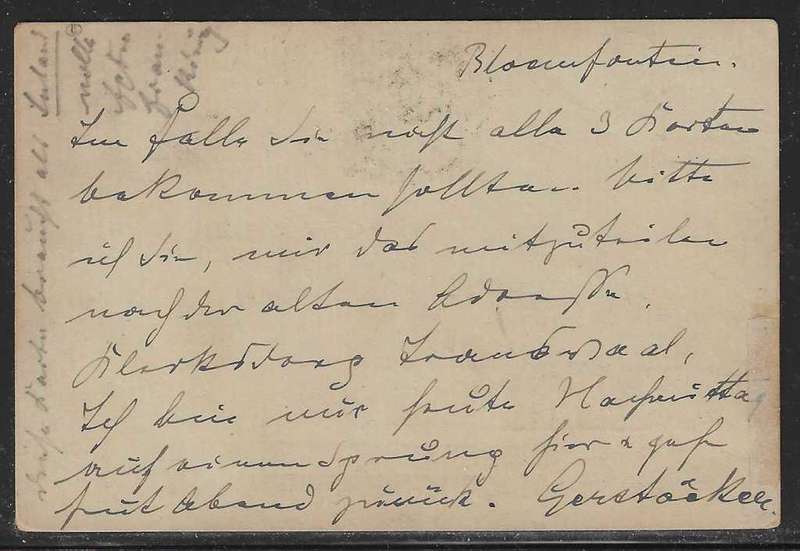 Bloemfontein.
Im Falle Sie nicht alle 3 Karten
bekommen sollten bitte
ich Sie, mir das mitzuteilen
nach der alten Adresse,
Klerksdorp Transvaal,
Ich bin nur heute Nachmittag
auf einen Sprung hier u gehe
heut Abend zurück. Gerstäcker.
Karten braucht als Inland